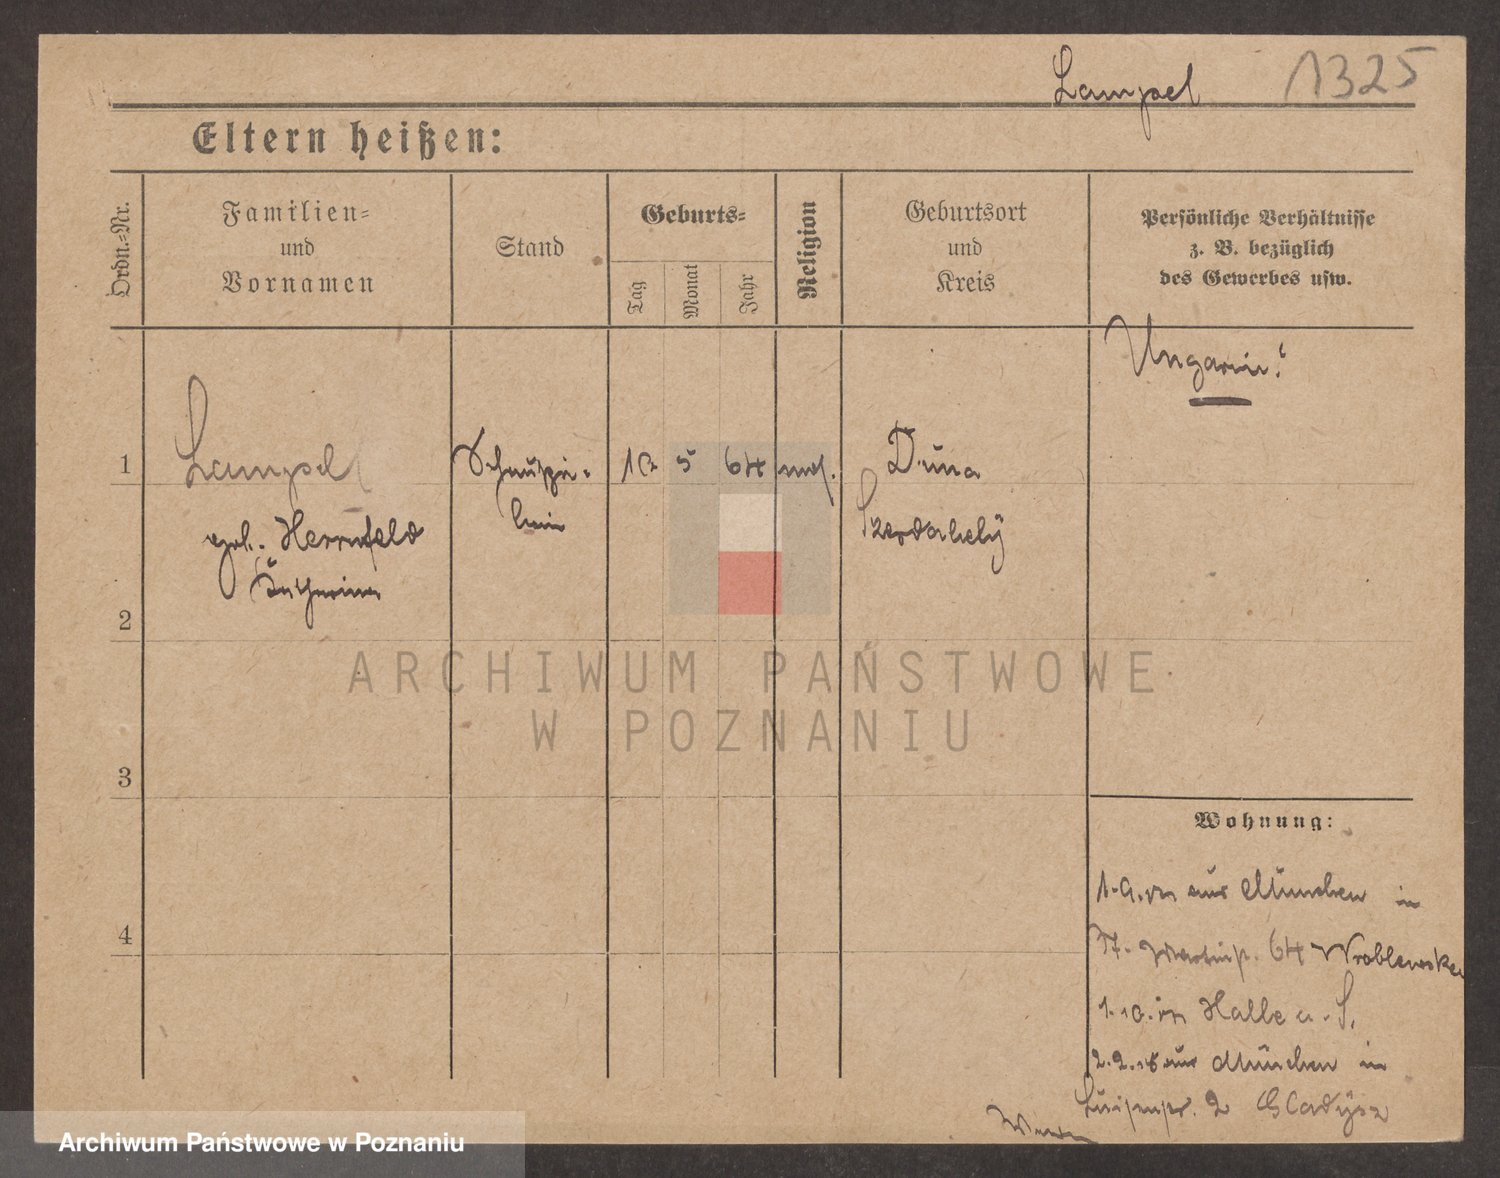 Lampel 1325
Eltern heißen:
Ordn.=Nr.
Familien=
und
Vornamen
Stand
Geburts=
Tag
Monat
Jahr
Religion
Geburtsort
und
Kreis
Persönliche Verhältnisse
z. B. bezüglich
des Gewerbes usw.
Ungarin!
1 Lampel Schauspie- 5 64 mos. Duna
lerin
geb. Herrnfeld Szerdahely
Katharina
2
3
4
ARCHIWUM PAŃSTWOWE
W POZNANIU
Wohnung:
aus München in
64 Wroblewska
1.10. in Halle a. S.
aus München in
Luisenstr. 2 Gladysz
Archiwum Państwowe w Poznaniu